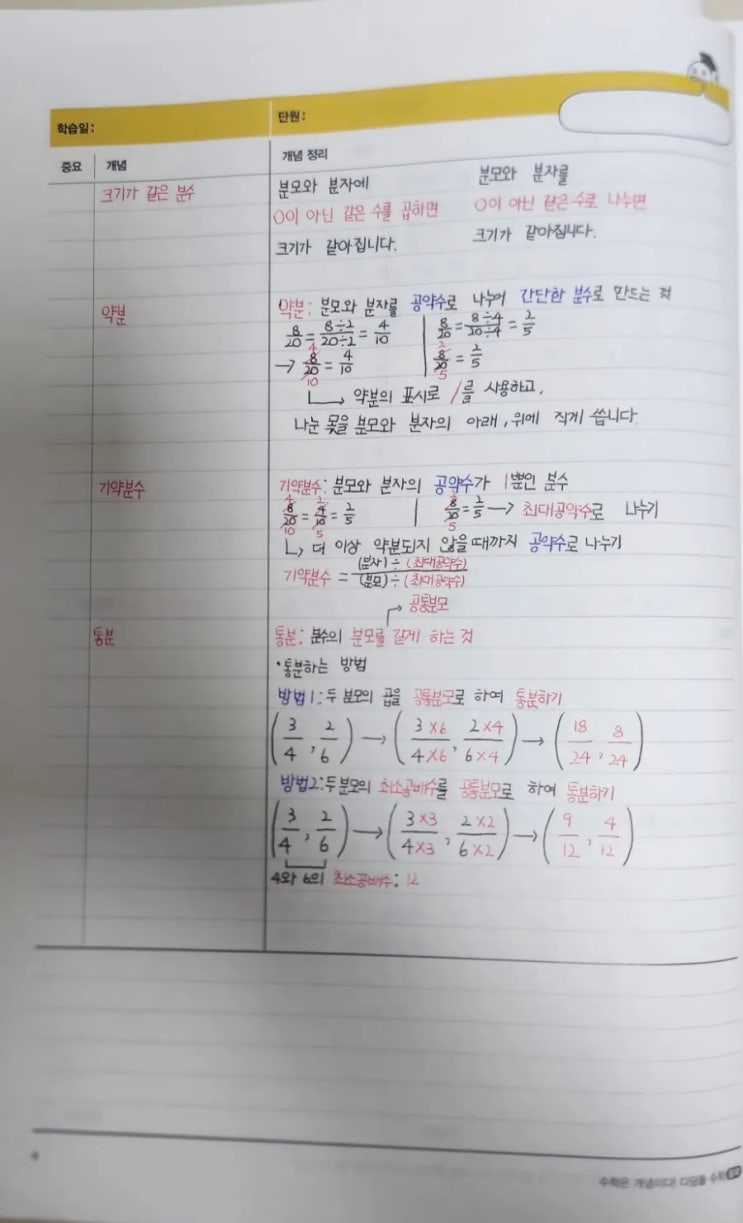 학습일:
단원:
중요 개념 개념 정리
크기가 같은 분수
분모와 분자에
0이 아닌 같은 수를 곱하면
크기가 같아집니다.
분모와 분자를
0이 아닌 같은 수로 나누면
크기가 같아집니다.
약분
약분: 분모와 분자를 공약수로 나누어 간단한 분수로 만드는 것
8/20 = 8÷2/20÷2 = 4/10
→ 8/20 = 4/10
4
10
8/20 = 8÷4/20÷4 = 2/5
8/20 = 2/5
2
5
↳ 약분의 표시로 /를 사용하고,
나눈 몫을 분모와 분자의 아래, 위에 작게 씁니다.
기약분수
기약분수: 분모와 분자의 공약수가 1뿐인 분수
8/20 = 4/10 = 2/5
4 2
10 5
8/20 = 2/5 → 최대공약수로 나누기
2
5
↳ 더 이상 약분되지 않을 때까지 공약수로 나누기
기약분수 = (분자)÷(최대공약수)/(분모)÷(최대공약수)
→ 공통분모
통분
통분: 분수의 분모를 같게 하는 것
·통분하는 방법
방법1: 두 분모의 곱을 공통분모로 하여 통분하기
(3/4, 2/6) → (3×6/4×6, 2×4/6×4) → (18/24, 8/24)
방법2: 두 분모의 최소공배수를 공통분모로 하여 통분하기
(3/4, 2/6) → (3×3/4×3, 2×2/6×2) → (9/12, 4/12)
4와 6의 최소공배수: 12
수학은 개념이다! 디딤돌 수학